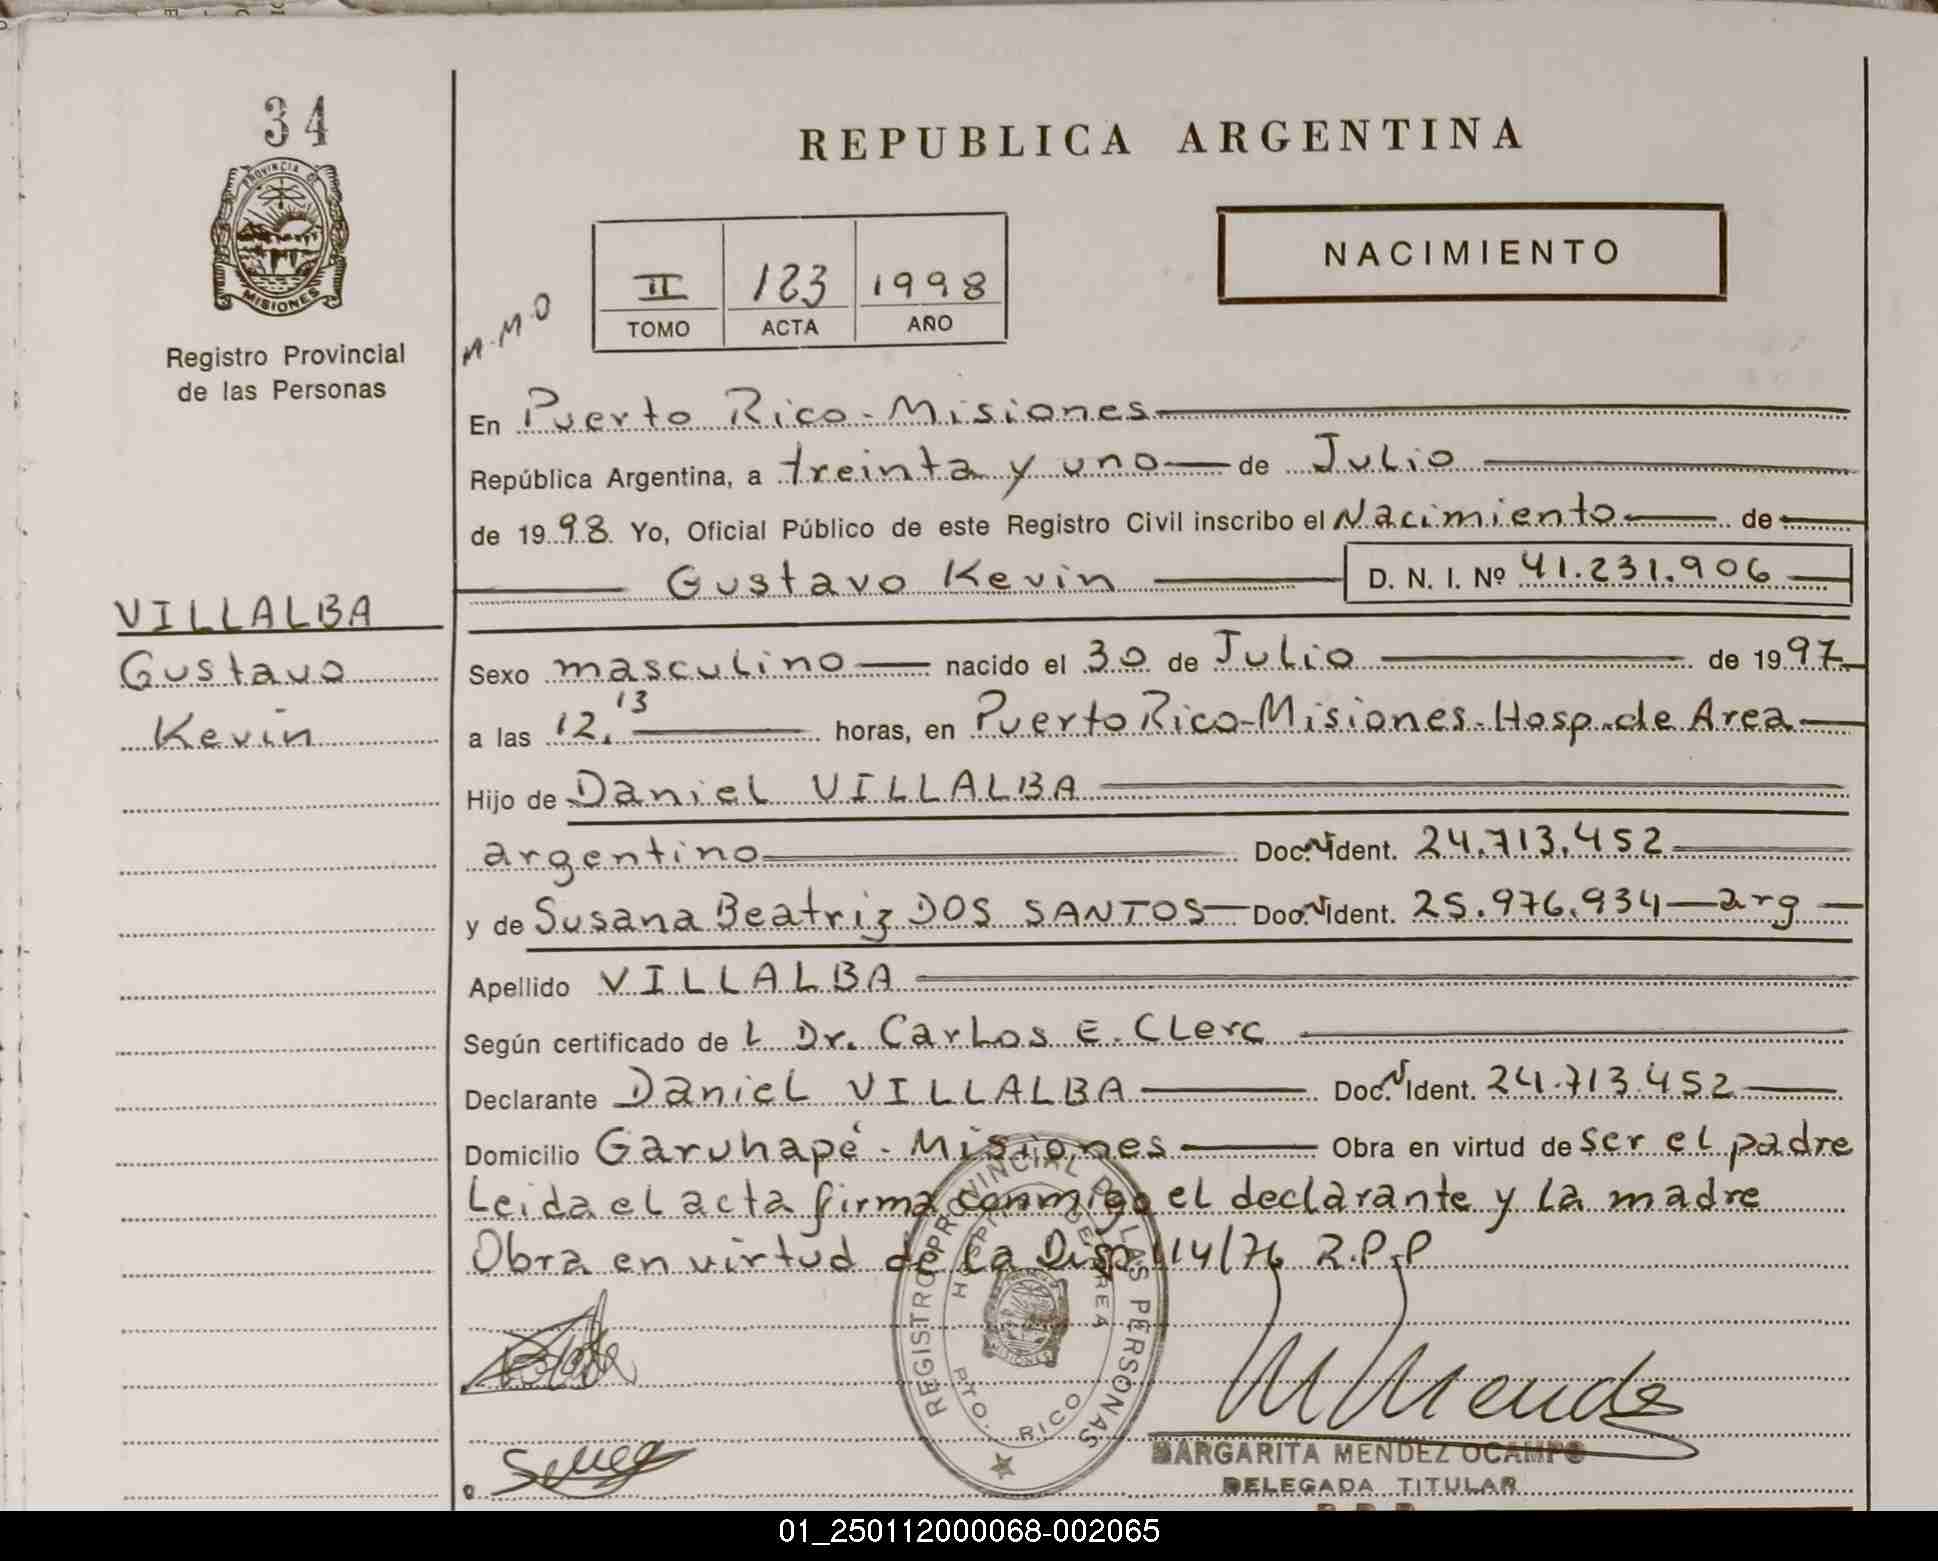 34
PROVINCIA DE
MISIONES
Registro Provincial
de las Personas
VILLALBA
Gustavo
Kevin
REPUBLICA ARGENTINA
NACIMIENTO
II 123 1998
TOMO ACTA AÑO
M.M.O
En Puerto Rico - Misiones
República Argentina, a treinta y uno de Julio
de 1998 Yo, Oficial Público de este Registro Civil inscribo el Nacimiento de
Gustavo Kevin D. N. I. Nº 41.231.906
Sexo masculino nacido el 30 de Julio de 1997
a las 12,13 horas, en Puerto Rico-Misiones-Hosp. de Area
Hijo de Daniel VILLALBA
argentino Doc. Ident. 24.713.452
y de Susana Beatriz DOS SANTOS Doc. Ident. 25.976.934 - arg
Apellido VILLALBA
Según certificado de L Dr. Carlos E. Clerc
Declarante Daniel VILLALBA Doc. Ident. 24.713.452
Domicilio Garuhapé - Misiones Obra en virtud de ser el padre
Leida el acta firma conmigo el declarante y la madre
Obra en virtud de la Disp 114/76 R.P.P
REGISTRO PROVINCIAL DE LAS PERSONAS
HOSPITAL DE AREA
PTO. RICO
MISIONES
M Mendez
MARGARITA MENDEZ OCAMPO
DELEGADA TITULAR
01_250112000068-002065